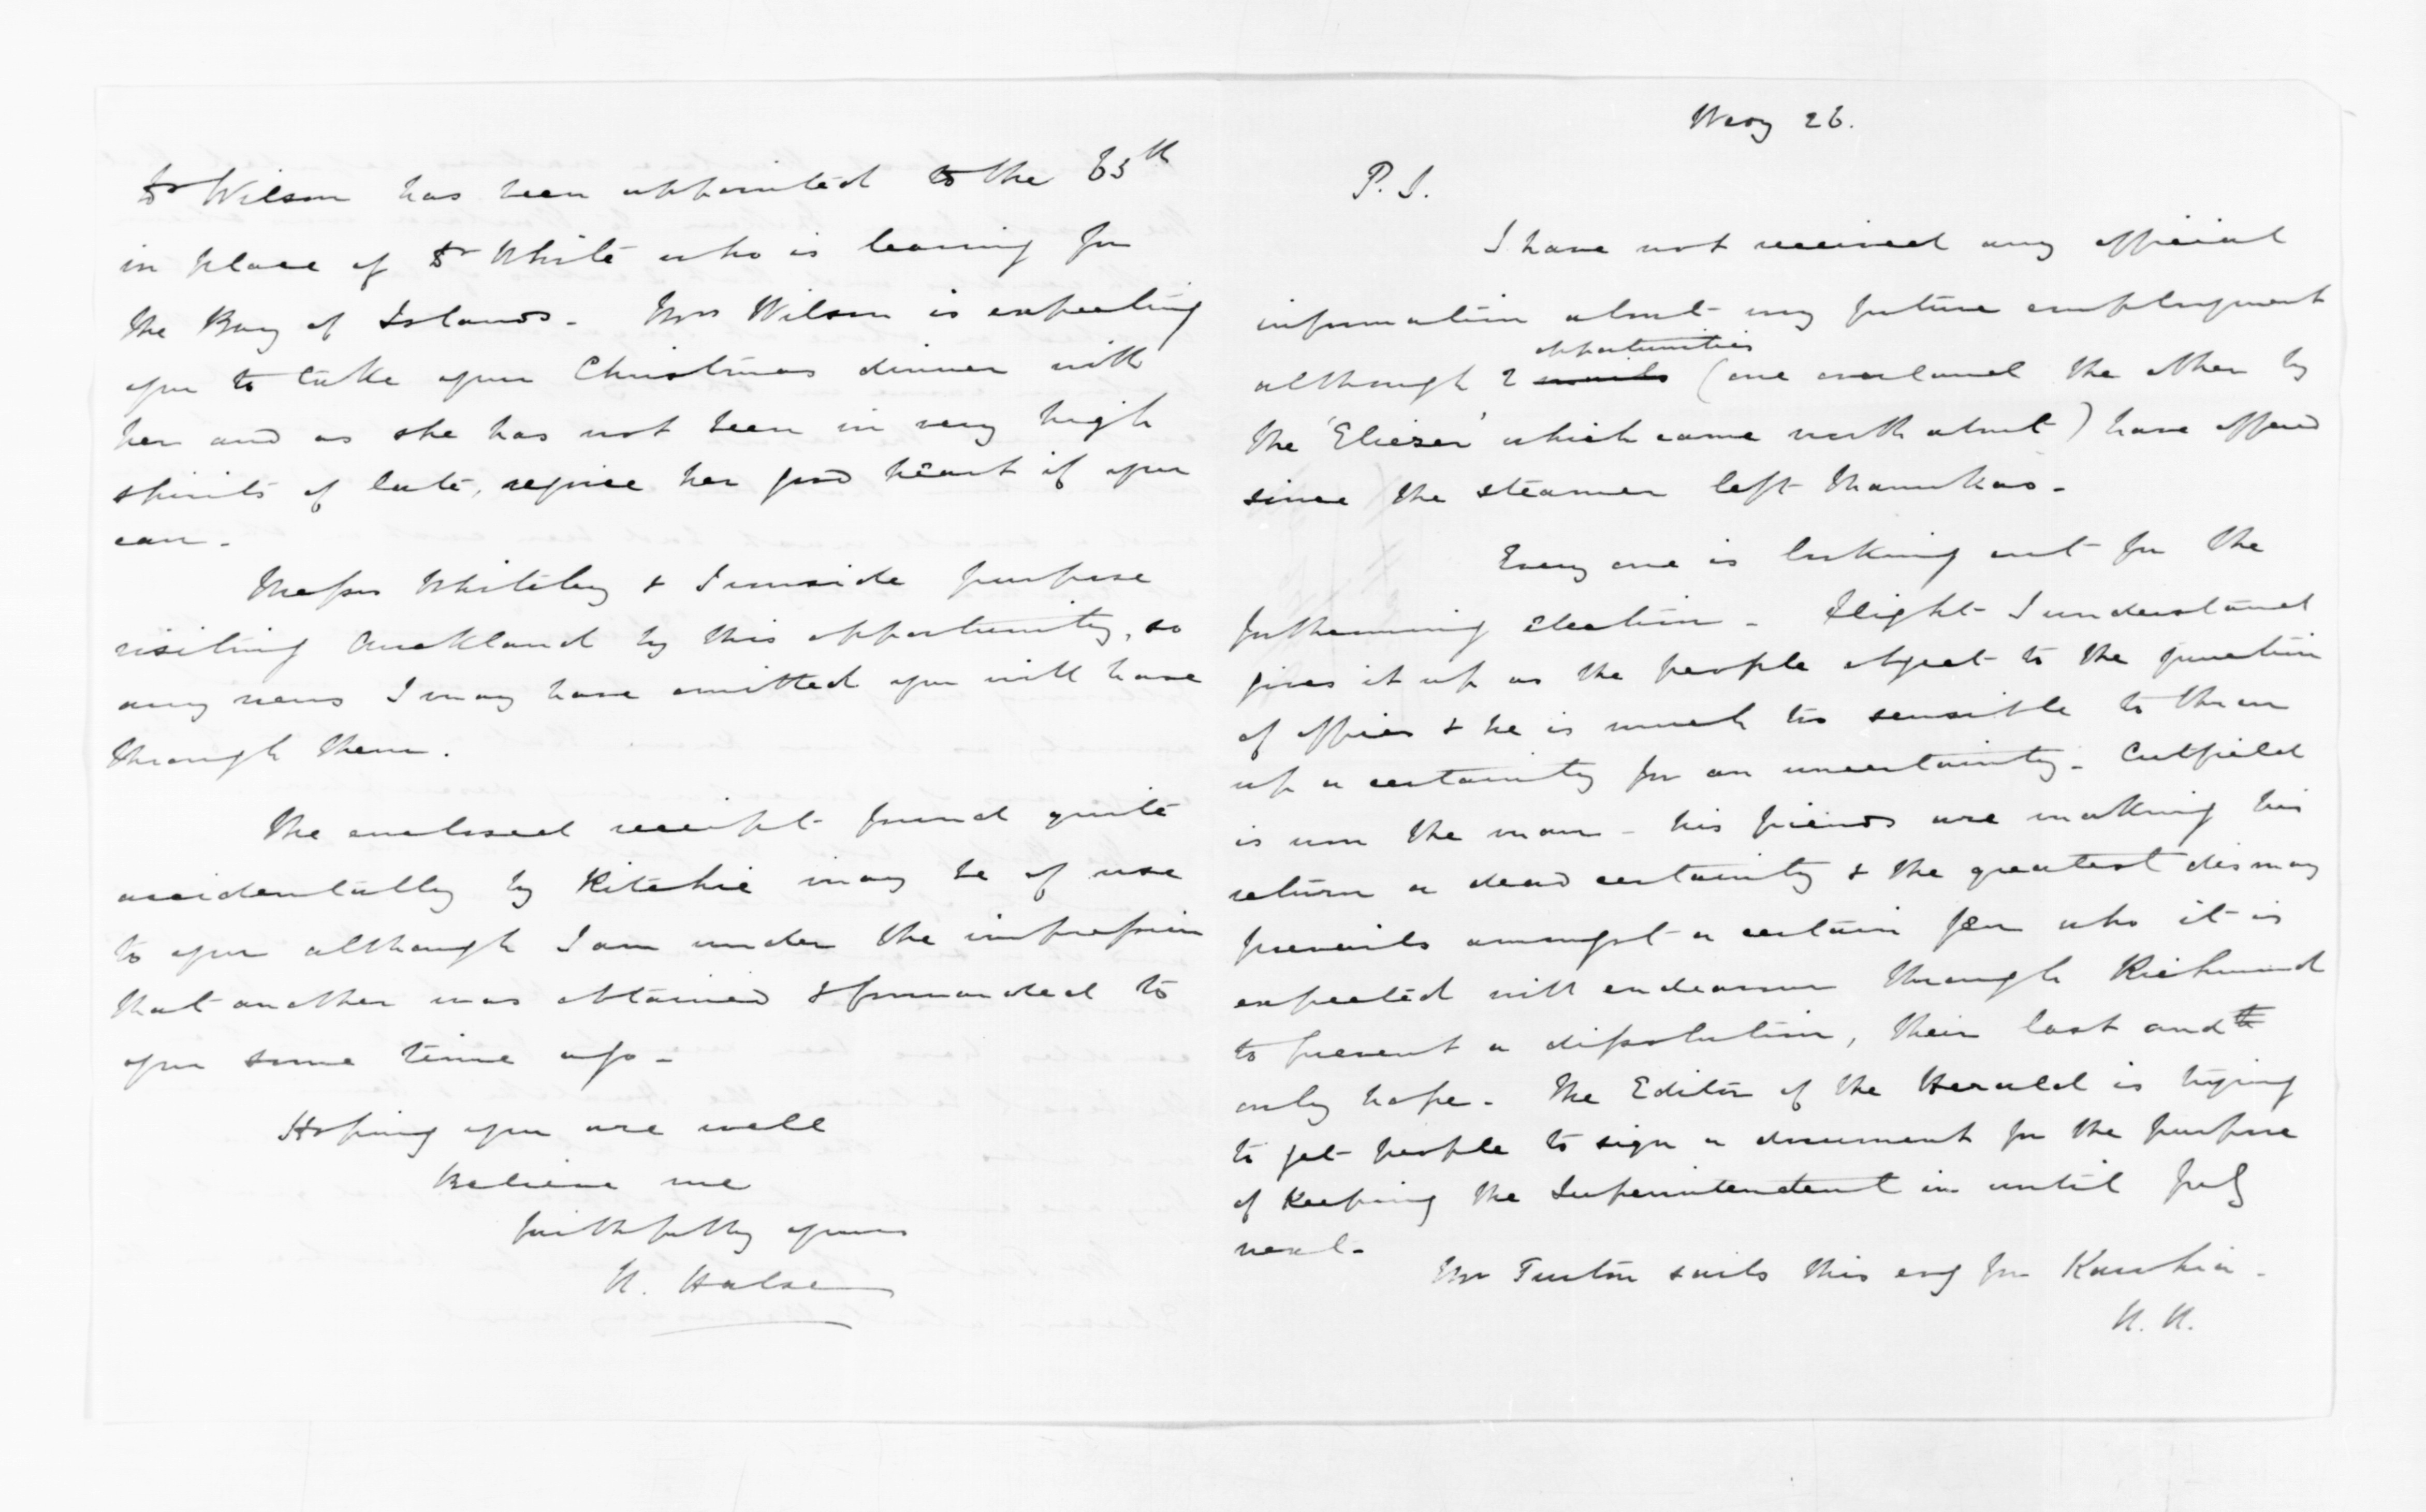 Dr Wilson has been appointed to the 65th
in place of Dr White who is leaving for
the Bay of Islands - Mrs Wilson is expecting
you to take your Christmas dinner with
her and as she has not been in very high
spirits of late, rejoice her good heart if you
can -
Messrs Whiteley & Ironside purpose
visiting Auckland by this opportunity, so
any news I may have omitted you will have
through them.
The enclosed receipt found quite
accidentally by Ritchie may be of use
to you although I am under the impression
that another was obtained & forwarded to
you some time ago -
Hoping you are well
Believe me
faithfully yours
H. Halse
Wedy 26.
P.S.
I have not received any official
information about my future employment
opportunities
although 2 mails (one overland the other by
the 'Eliezer' which came north about) have offered
since the steamer left Manukao -
Every one is looking out for the
forthcoming Election - Flight I understand
gives it up as the people object to the junction
of offices & he is much too sensible to throw
up a certainty for an uncertainty - Cutfield
is now the man - his friends are making his
return a dead certainty & the greatest dismay
prevails amongst a certain few who it is
expected will endeavour through Richmond
to prevent a dissolution, their last and
only hope - The Editor of the Herald is trying
to get people to sign a document for the purpose
of keeping the Superintendent in until July
next -
Mr Turton sails this evg for Kawhia -
H. H.